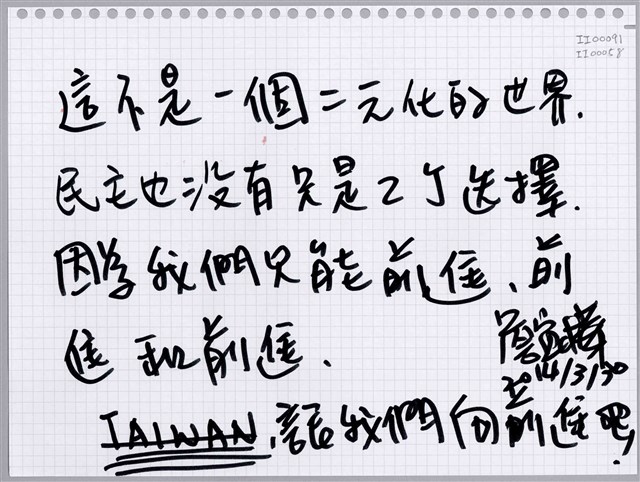 II00091
II00058
這不是一個二元化的世界.
民主也没有只是2个选擇.
因為我們只能前進、前
進和前進.
2014/3/30
TAIWAN,讓我們向前進吧!